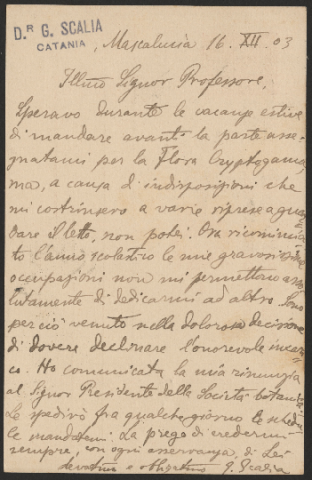 Dr G. SCALIA
CATANIA
, Mascalucia 16. XII. 03
Illmo Signor Professore,
Speravo durante le vacanze estive
di mandare avanti la parte asse-
gnatami per la Flora Cryptogama,
ma, a causa d'indisposizioni che
mi costrinsero a varie riprese a guar
dare il letto, non potei. Ora ricomincia
to l'anno scolastico le mie gravosissime
occupazioni non mi permettono asso
lutamente di dedicarmi ad altro. Sono
perciò venuto nella dolorosa decisione
di dovere declinare l'onorevole incari
co. Ho comunicata la mia rinunzia
al Signor Presidente della Società botanica.
Le spedirò fra qualche giorno le schede
le mandatemi. La prego di credermi
sempre, con ogni osservanza, di Lei
devotmo e obbligatmo G. Scalia